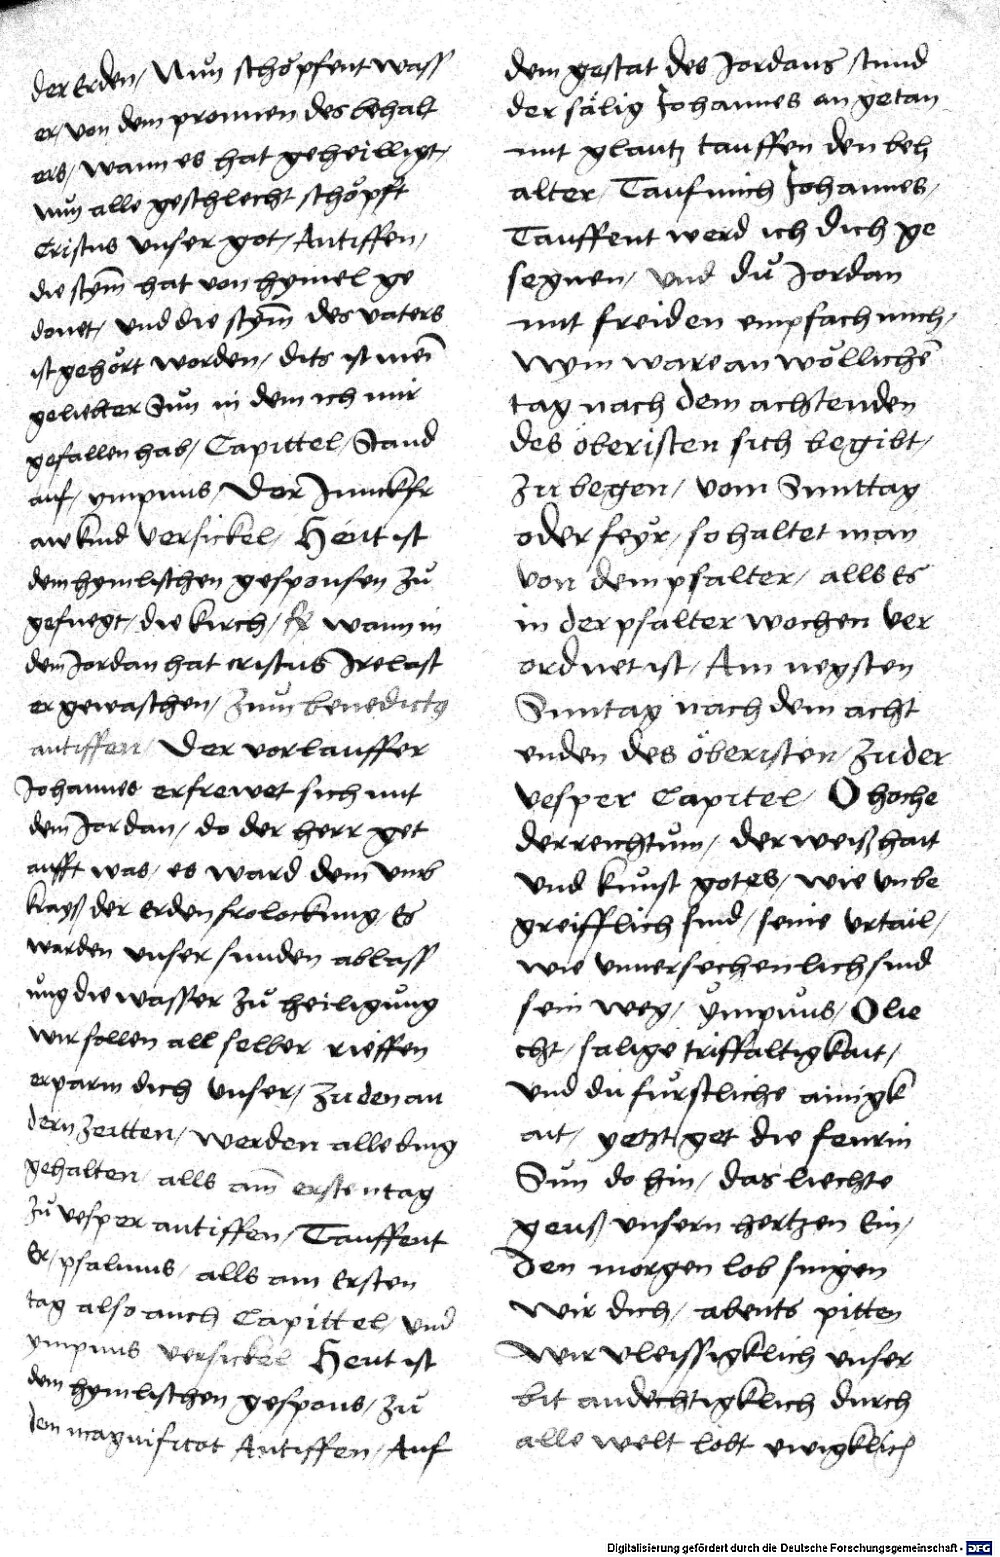 der Erden / Nůn schöpfent wass
er / von dem pronnen des behalt
ers / wann es hat geheilligt /
nůn alle geschlecht schöpft
Cristus vnser got / Antiffen /
die stym̄ hat von hymel ge
donet / vnd die stym̄ des vaters
ist gehört worden / dits ist mein̄
geliebter Sůn in dem ich mir
gefallen hab / Capittel / Stand
auf / ympnus / Der Junckfr
aw kind Versickel / Heut ist
dem hymlischen gesponsen zů
gefuegt / die kirch / wann in
dem Jordan hat cristus Ire last
er gewaschen / Zum benedictus
antiffen / Der vorlauffer
Johannes erfrewet sich mit
dem Jordan / do der herr get
aufft was / es ward dem vmb
krayß der Erden frolockung / Es
warden vnser sunden ablass
ung die wasser zů heiligůng
wir sollen all selber rieffen
erparm dich vnser / Zu den an
dern Zeitten / werden alle ding
gehalten / alls am̄ ersten tag
Zů vesper antiffen / Tauffent
Er / psalmus / alls am Ersten
tag also auch Capittel / vnd
ympnus versickel Heut ist
dem hymlischen gespons / zů
dem magnificat Antiffen / Auf
dem gestat des Jordans / stund
der sälig Johannes an getan
mit glantz tauffen den beh
alter / Tauf mich Johannes /
Tauffent werd ich dich ge
segnen / vnd dů Jordan
mit freiden empfach mich /
Wym ware an wöllichē
tag nach dem achtenden
des öberisten sich begibt /
Zu begen / vom Sunttag
oder feyr / so haltet man
von dem psalter / alls Es
in der psalter wochen ver
ordnet ist / Am negsten
Sunntag nach dem acht
enden des öberisten / Zu der
vesper Capitel / O hoche
der reichtum / der weißhait
vnd kunst gotes / wie vnbe
greifflich sind / seine vrtail /
wie vnnersechenlich sind
sein weg / ympnus / O lie
cht / salige triffaltigkait /
vnd du fürstliche ainigk
ait / yetzt get die feurin
Sůn do hin / das liechte
geuß vnsern hertzen Ein /
Den morgen lob singen
wir dich / abents pitten
wir vleissigklich vnser
bit andechtigklich durch
alle welt lobt ewigklich
Digitalisierung gefördert durch die Deutsche Forschungsgemeinschaft - DFG